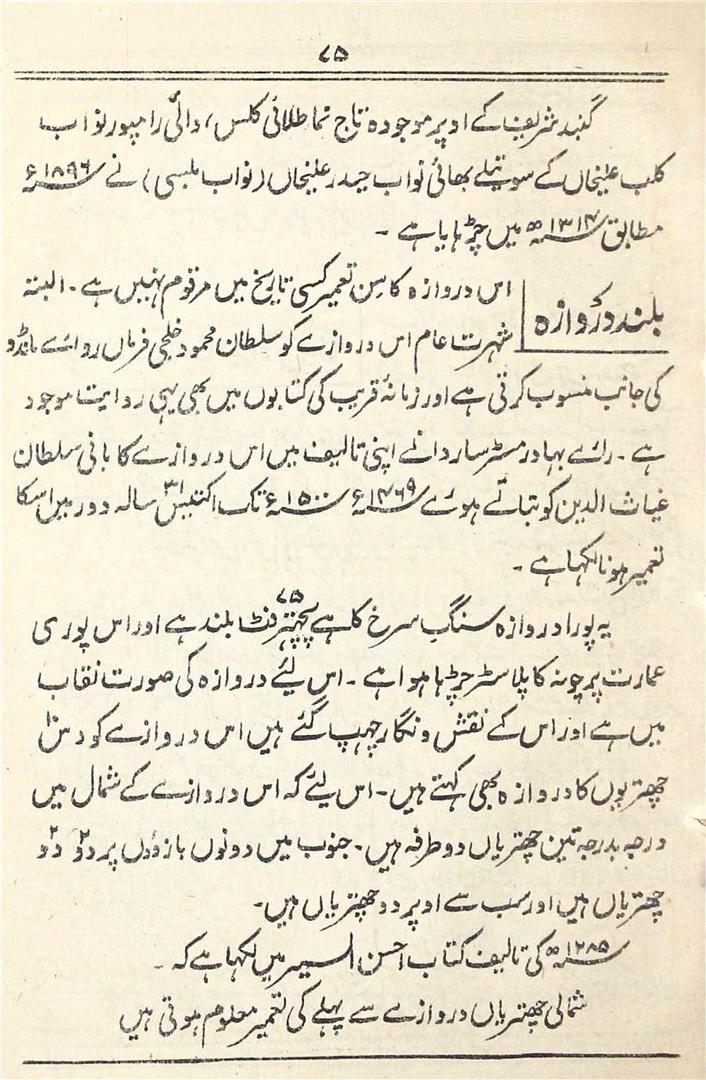 ۷۵
گنبد شریف کے اوپر موجودہ تاج نما طلائی کلس، والئی رامپور نواب
کلب علیخاں کے سوتیلے بھائی نواب حیدر علیخاں (نواب بلسی) نے ۱۸۹۶ء
مطابق ۱۳۱۴ھ میں چڑہایا ہے ۔
بلند دروازہ
اس دروازہ کا سِن تعمیر کسی تاریخ میں مرقوم نہیں ہے ۔ البتہ
شہرت عام اس دروازے کو سلطان محمود خلجی فرماں روائے مانڈو
کی جانب منسوب کرتی ہے اور زمانۂ قریب کی کتابوں میں بھی یہی روایت موجود
ہے ۔ رائے بہادر مسٹر ساردا نے اپنی تالیف میں اس دروازے کا بانی سلطان
غیاث الدین کو بتاتے ہوئے ۱۴۶۹ء ۱۵۰۰ء تک اکتیس ۳۱ سالہ دور میں اسکا
تعمیر ہونا لکہا ہے ۔
یہ پورا دروازہ سنگ سرخ کا ہے پچھتر ۷۵ فٹ بلند ہے اور اس پوری
عمارت پر چونہ کا پلاسٹر چڑہا ہوا ہے ۔ اس لئے دروازہ کی صورت نقاب
میں ہے اور اس کے نقش و نگار چہپ گئے ہیں اس دروازے کو دس ۱۰
چھتریوں کا دروازہ بھی کہتے ہیں ۔ اس لئے کہ اس دروازے کے شمال میں
درجہ بدرجہ تین چھتریاں دو طرفہ ہیں ۔ جنوب میں دونوں بازوؤں پر دو ۲ دو ۲
چھتریاں ہیں اور سب سے اوپر دو چھتریاں ہیں ۔
۱۲۸۵ھ کی تالیف کتاب احسن السیر میں لکہا ہے کہ ۔
شمالی چھتریاں دروازے سے پہلے کی تعمیر معلوم ہوتی ہیں